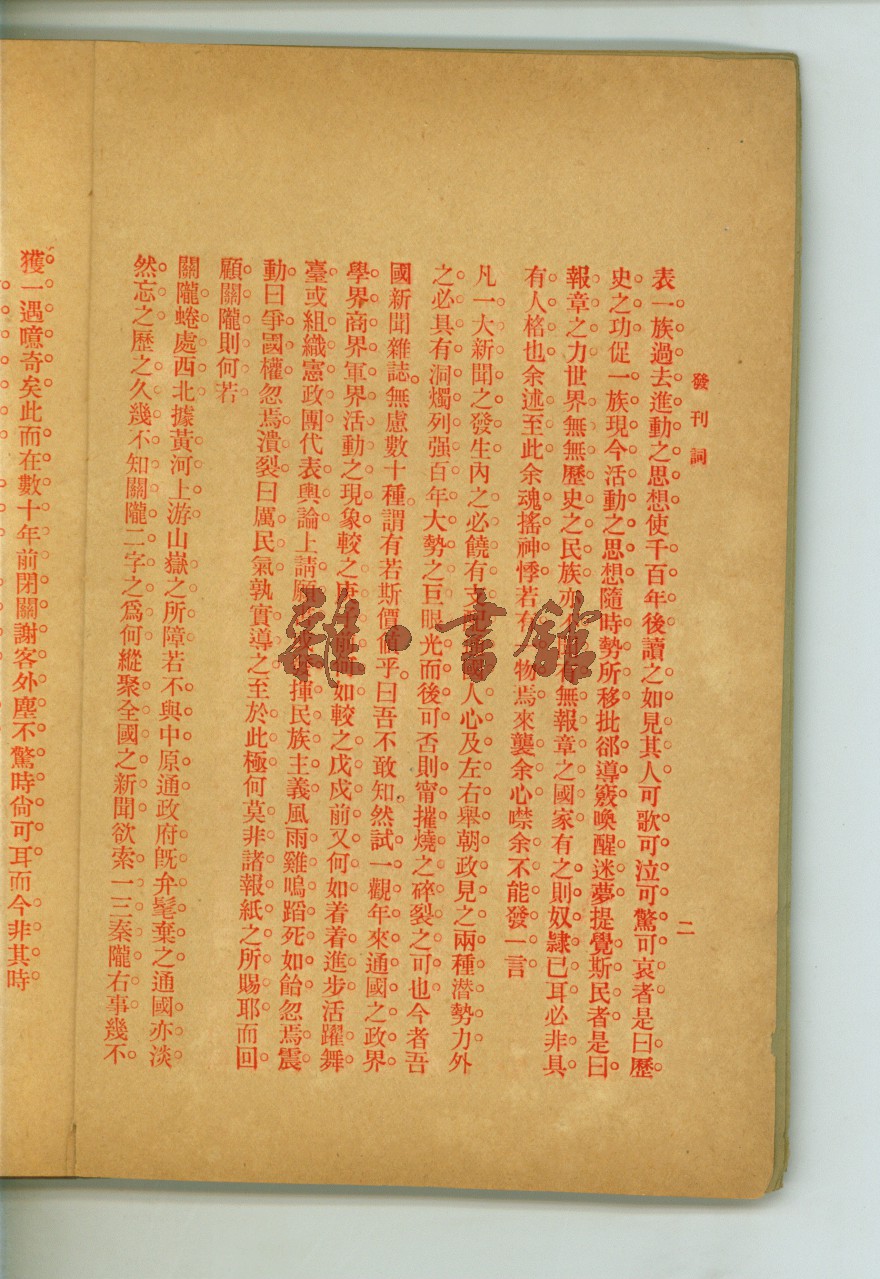 發刊詞
二
表一族過去進動之思想使千百年後讀之如見其人可歌可泣可驚可哀者是曰歷
史之功促一族現今活動之思想隨時勢所移批郤導竅喚醒迷夢提覺斯民者是曰
報章之力世界無無歷史之民族亦無報章之國家有之則奴隷已耳必非具
有人格也余述至此余魂搖神悸若有物焉來襲余心噤余不能發一言
凡一大新聞之發生內之必饒有支人心及左右舉朝政見之兩種潜勢力外
之必具有洞燭列强百年大勢之巨眼光而後可否則甯摧燒之碎裂之可也今者吾
國新聞雜誌無慮數十種謂有若斯價値乎曰吾不敢知然試一觀年來通國之政界
學界商界軍界活動之現象較之庚子前何如較之戊戌前又何如着着進步活躍舞
臺或組織憲政團代表輿論上請願揮民族主義風雨雞鳴蹈死如飴忽焉震
動曰爭國權忽焉潰裂曰厲民氣孰實導之至於此極何莫非諸報紙之所賜耶而回
顧關隴則何若
關隴蜷處西北據黃河上游山嶽之所障若不與中原通政府旣弁髦棄之通國亦淡
然忘之歷之久幾不知關隴二字之爲何縱聚全國之新聞欲索一三秦隴右事幾不
獲一遇噫奇矣此而在數十年前閉關謝客外塵不驚時尙可耳而今非其時
雜·書館